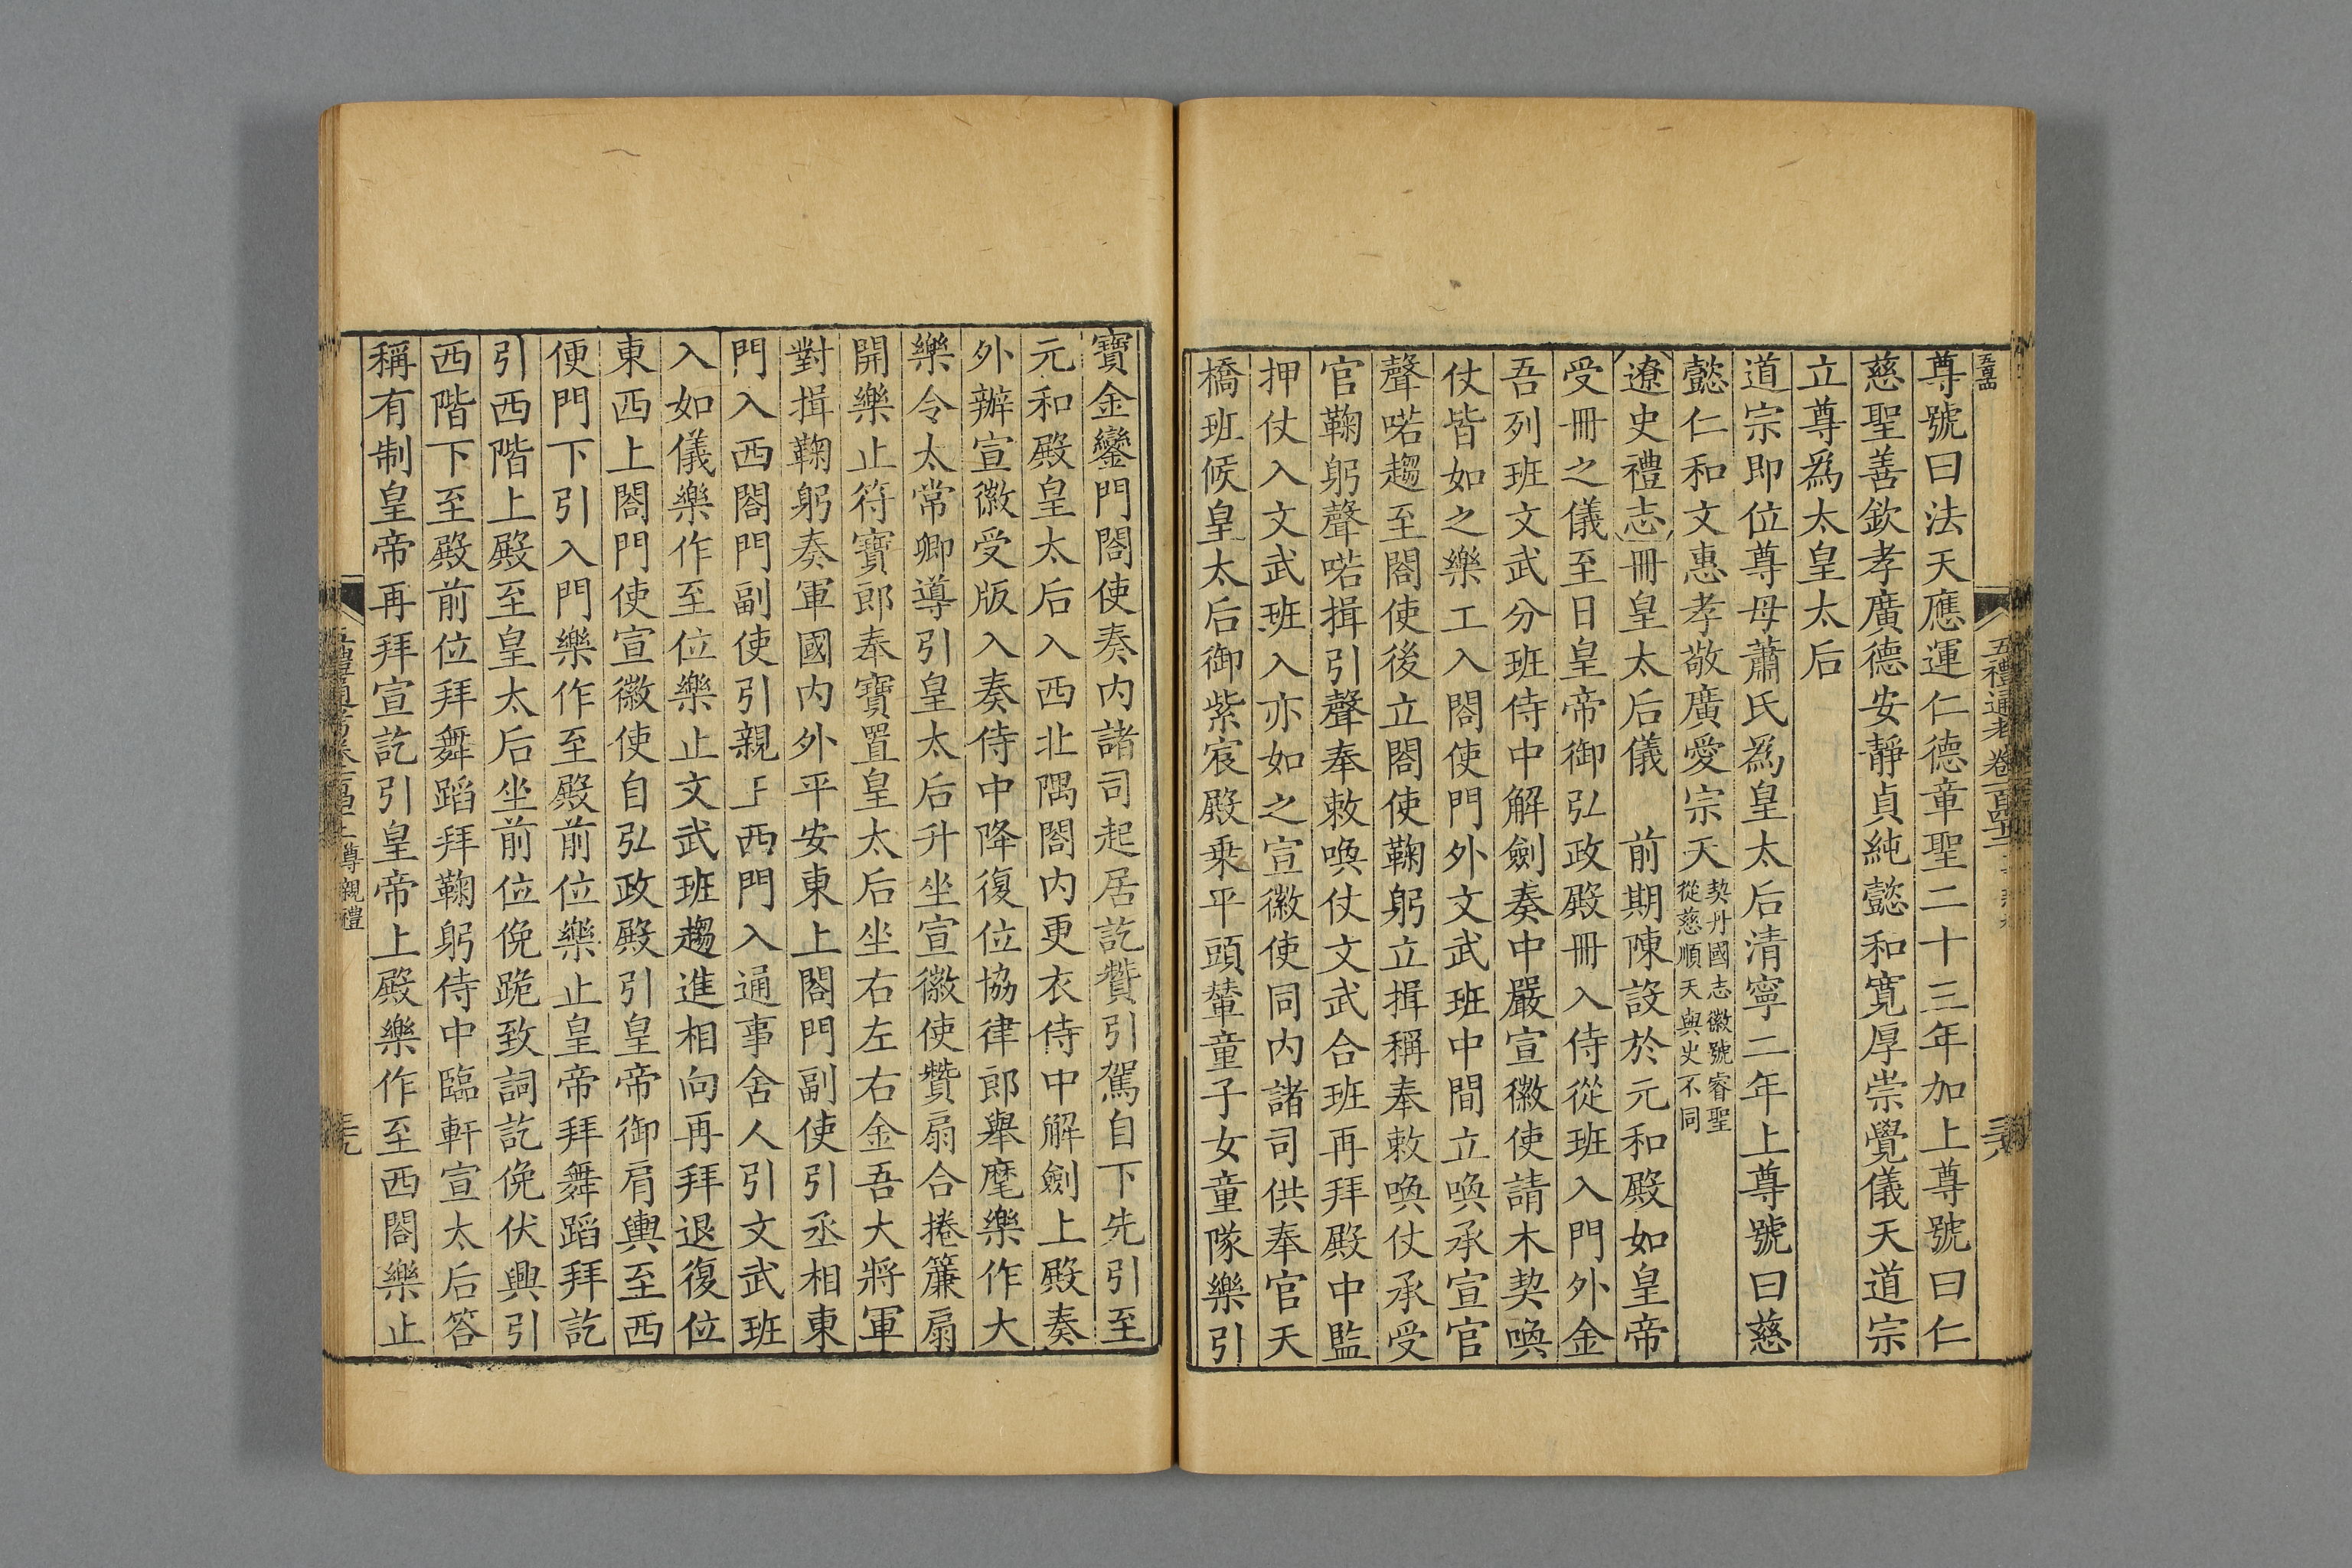 尊號曰法天應運仁德章聖二十三年加上尊號曰仁
慈聖善欽孝廣德安靜貞純懿和寬厚崇覺儀天道宗
立尊爲太皇太后
道宗即位尊母蕭氏爲皇太后清寧二年上尊號曰慈
懿仁和文惠孝敬廣愛宗天契丹國志徽號睿聖
從慈順天與史不同
遼史禮志冊皇太后儀　前期陳設於元和殿如皇帝
受冊之儀至日皇帝御弘政殿冊入侍從班入門外金
吾列班文武分班侍中解劍奏中嚴宣徽使請木契喚
仗皆如之樂工入閤使門外文武班中間立喚承宣官
聲喏趨至閤使後立閤使鞠躬立揖稱奉敕喚仗承受
官鞠躬聲喏揖引聲奉敕喚仗文武合班再拜殿中監
押仗入文武班入亦如之宣徽使同內諸司供奉官天
橋班候皇太后御紫宸殿乗平頭輦童子女童隊樂引
寶金鑾門閤使奏內諸司起居訖贊引駕自下先引至
元和殿皇太后入西北隅閤內更衣侍中解劍上殿奏
外辦宣徽受版入奏侍中降復位協律郎舉麾樂作大
樂令太常卿導引皇太后升坐宣徽使贊扇合捲簾扇
開樂止符寶郎奉寶置皇太后坐右左右金吾大將軍
對揖鞠躬奏軍國內外平安東上閤門副使引丞相東
門入西閤門副使引親王西門入通事舍人引文武班
入如儀樂作至位樂止文武班趨進相向再拜退復位
東西上閤門使宣徽使自弘政殿引皇帝御肩輿至西
便門下引入門樂作至殿前位樂止皇帝拜舞蹈拜訖
引西階上殿至皇太后坐前位俛跪致詞訖俛伏興引
西階下至殿前位拜舞蹈拜鞠躬侍中臨軒宣太后答
稱有制皇帝再拜宣訖引皇帝上殿樂作至西閤樂止
尊親禮